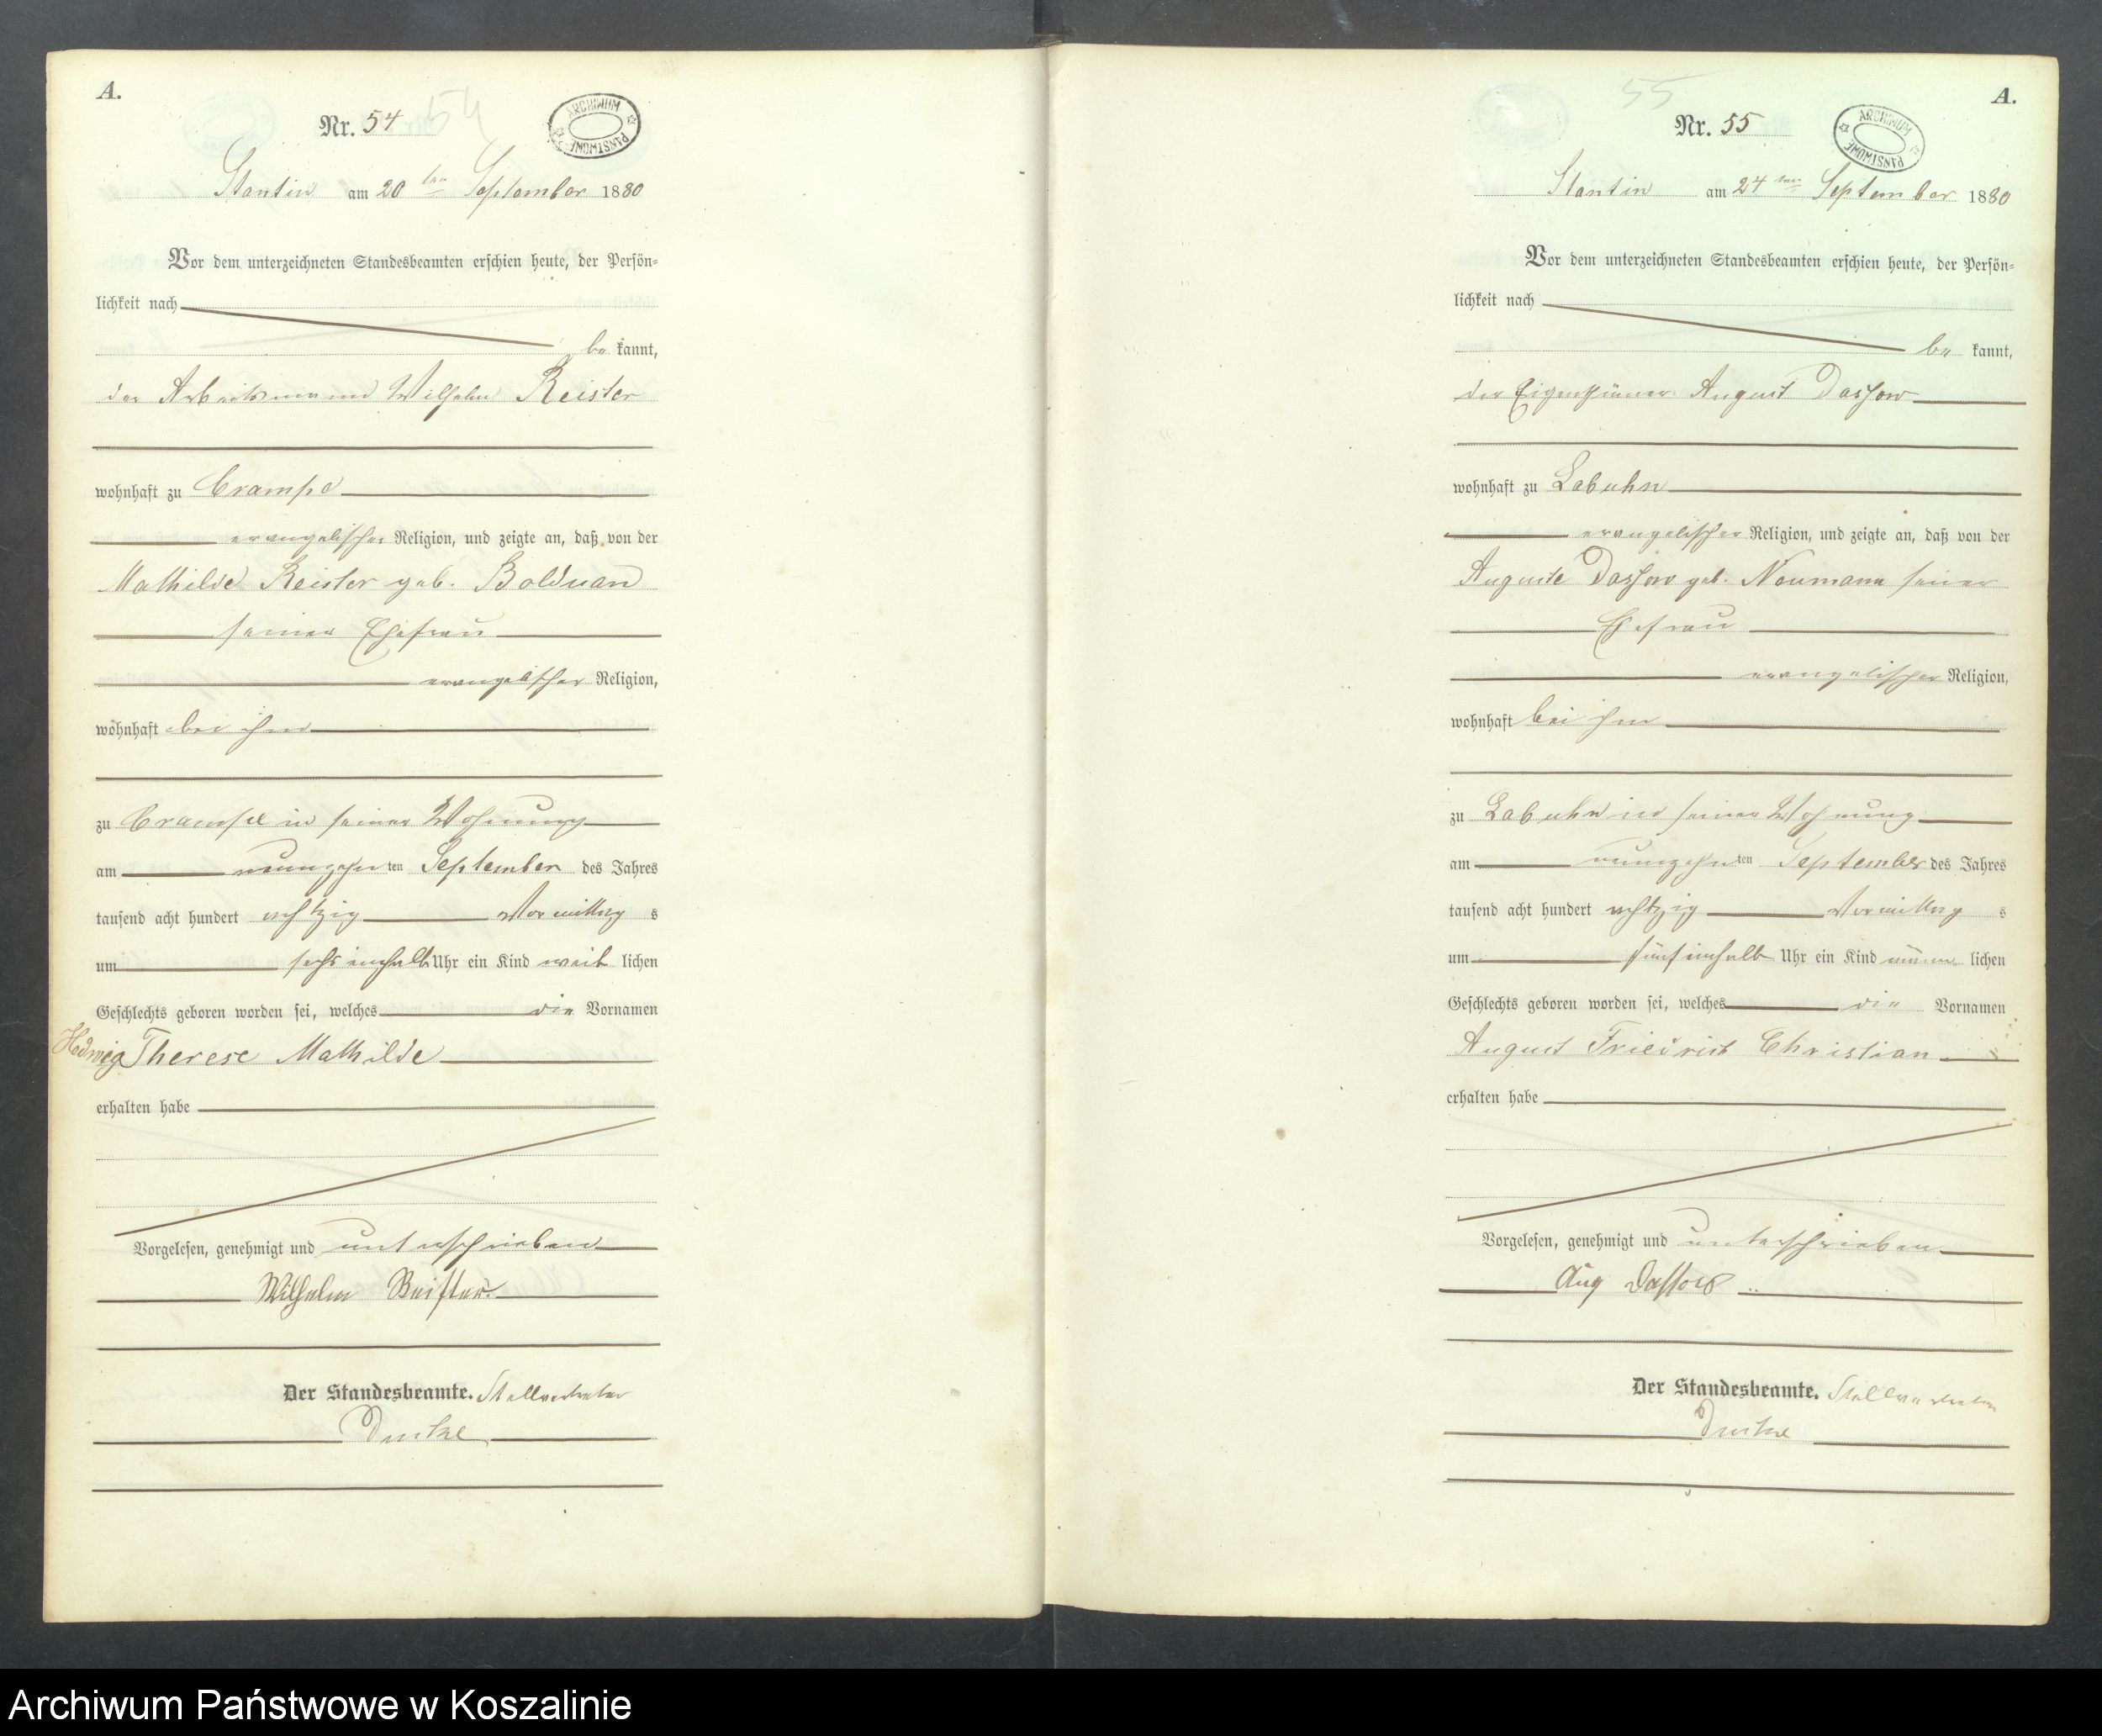 A.
Nr. 54
54
ARCHIWUM PAŃSTWOWE
Stantin am 20 ten September 1880
Vor dem unterzeichneten Standesbeamten erschien heute, der Persön-
lichkeit nach
be kannt,
der Arbeitsmann Wilhelm Reister
wohnhaft zu Crampe
evangelischer Religion, und zeigte an, daß von der
Mathilde Reister geb. Bolduan
seiner Ehefrau
evangelischer Religion,
wohnhaft bei ihm
zu Crampe in seiner Wohnung
am neunzehn ten September des Jahres
tausend acht hundert achtzig Vormittag s
um sechseinhalb Uhr ein Kind weib lichen
Geschlechts geboren worden sei, welches die Vornamen
Hedwig Therese Mathilde
erhalten habe
Vorgelesen, genehmigt und unterschrieben
Wilhelm Reister
Der Standesbeamte. Stellvertreter
A.
55
Nr. 55
ARCHIWUM PAŃSTWOWE
Stantin am 24 ten September 1880
Vor dem unterzeichneten Standesbeamten erschien heute, der Persön-
lichkeit nach
be kannt,
der Eigenthümer August Dassow
wohnhaft zu Labuhn
evangelischer Religion, und zeigte an, daß von der
Auguste Dassow geb. Neumann seiner
Ehefrau
evangelischer Religion,
wohnhaft bei ihm
zu Labuhn in seiner Wohnung
am neunzehn ten September des Jahres
tausend acht hundert achtzig Vormittag s
um fünfeinhalb Uhr ein Kind männ lichen
Geschlechts geboren worden sei, welches die Vornamen
August Friedrich Christian
erhalten habe
Vorgelesen, genehmigt und unterschrieben
Aug Dassow
Der Standesbeamte. Stellvertreter
Archiwum Państwowe w Koszalinie